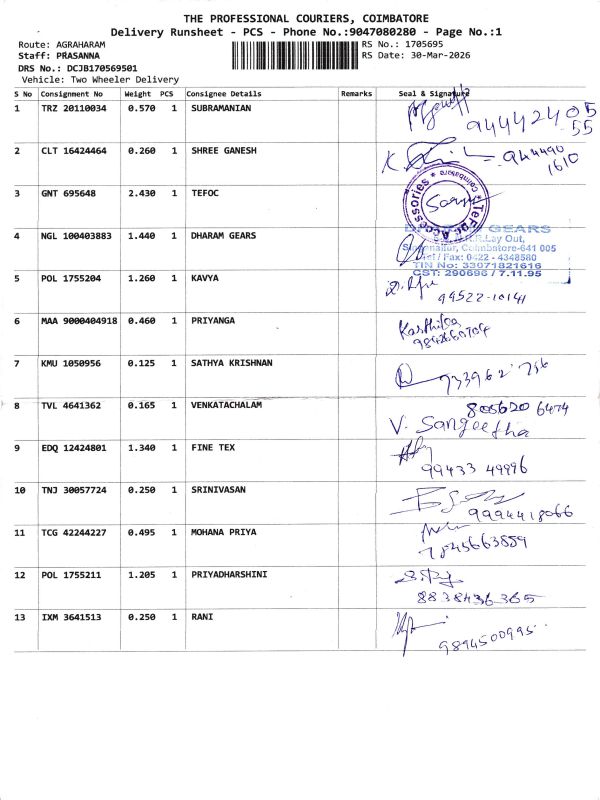 THE PROFESSIONAL COURIERS, COIMBATORE
Delivery Runsheet - PCS - Phone No.:9047080280 - Page No.:1
Route: AGRAHARAM
Staff: PRASANNA
DRS No.: DCJB170569501
Vehicle: Two Wheeler Delivery
RS No.: 1705695
RS Date: 30-Mar-2026
S No Consignment No Weight PCS Consignee Details Remarks Seal & Signature
1 TRZ 20110034 0.570 1 SUBRAMANIAN
94442405
55
2 CLT 16424464 0.260 1 SHREE GANESH
944490
1610
3 GNT 695648 2.430 1 TEFOC
TeFoc Accessories * Coimbatore *
4 NGL 100403883 1.440 1 DHARAM GEARS
GEARS
Lay Out,
Coimbatore-641 005
Tel / Fax: 0422 - 4348580
TIN No: 33071821616
CST: 290696 / 7.11.95
5 POL 1755204 1.260 1 KAVYA
99522-10141
6 MAA 9000404918 0.460 1 PRIYANGA
Karthika
7 KMU 1050956 0.125 1 SATHYA KRISHNAN
8 TVL 4641362 0.165 1 VENKATACHALAM
805620 6474
V. Sangeetha
9 EDQ 12424801 1.340 1 FINE TEX
99433 49996
10 TNJ 30057724 0.250 1 SRINIVASAN
9994418066
11 TCG 42244227 0.495 1 MOHANA PRIYA
7845663859
12 POL 1755211 1.205 1 PRIYADHARSHINI
8838436365
13 IXM 3641513 0.250 1 RANI
9894500995